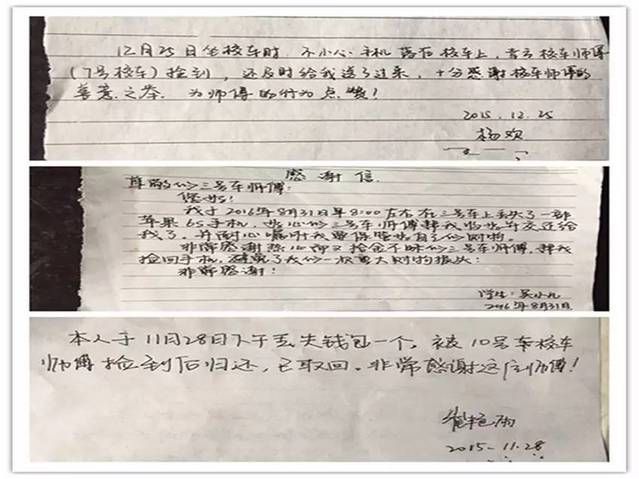 12月25日坐校车时,不小心手机落在校车上,李云校车师傅
(7号校车)捡到,还及时给我送了过来,十分感谢校车师傅的
善意之举。为师傅的行为点赞!
2015.12.25
杨欢
感谢信
尊敬的三号车师傅:
您好!
我于2016年8月31日早8:00左右在三号车上丢失了一部
苹果6S手机,三号车师傅
我了,并耐心嘱咐我要保管好自己的财物。
非常感谢热心而又拾金不昧的三号车师傅,替我
捡回手机,避免了我的一次重大财物损失!
非常感谢!
学生:吴小凡
2016年8月31日
本人于11月28日下午丢失钱包一个。被10号车校车
师傅捡到后归还,已取回。非常感谢这位师傅!
2015-11.28